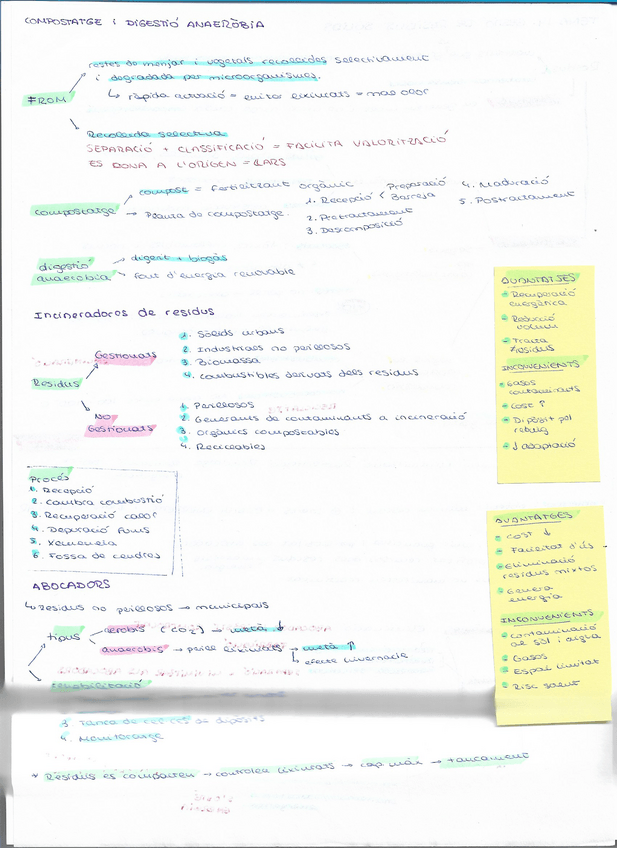 COMPOSTATGE i DIGESTIÓ ANAERÒBIA
restes de menjar i vegetals recollides selectivament
i degradada per microorganismes.
↳ ràpida actuació = evitar lixiviats = mal olor
FROM
Recollida selectiva
SEPARACIÓ + CLASSIFICACIÓ = FACILITA VALORITZACIÓ
ES DONA A L'ORÍGEN = LLARS
compostatge
compost = fertilitzant orgànic
→ Planta de compostatge.
1. Recepció < Preparació
Barreja
2. Pretractament
3. Descomposició
4. Maduració
5. Postractament
digestió
anaeròbia
→ digest + biogàs
Font d'energia renovable
Incineradores de residus
Residus
Gestionats
1. Sòlids urbans
2. Industrials no perillosos
3. Biomassa
4. Combustibles derivats dels residus
NO
Gestionats
1. Perillosos
2. Generants de contaminants a incineració
3. Orgànics compostables
4. Reciclables
AVANTATJES
Recuperació
energètica
Reducció
volum
Tracta
residus
INCONVENIENTS
Gasos
contaminants
Cost ↑
Dipòsit pel
rebuig
↓ adaptació
Procés
1. Recepció
2. Cambra combustió
3. Recuperació calor
4. Depuració fums
5. Xemeneia
6. Fossa de cendres
ABOCADORS
↳ Residus no perillosos → municipals
tipus
aerobis (CO₂) → metà ↓
anaerobis → perill lixiviats → metà ↑
↳ efecte hivernacle
AVANTATGES
Cost ↓
Facilitat d'ús
Eliminació
residus mixtos
Genera
energia
INCONVENIENTS
Contaminació
al sòl i aigua
Gasos
Espai limitat
Risc salut
3. Tanca de cel·les de dipòsits
4. Monitoratge
* Residus es compacten → controlen lixiviats → cap. màx → tancament